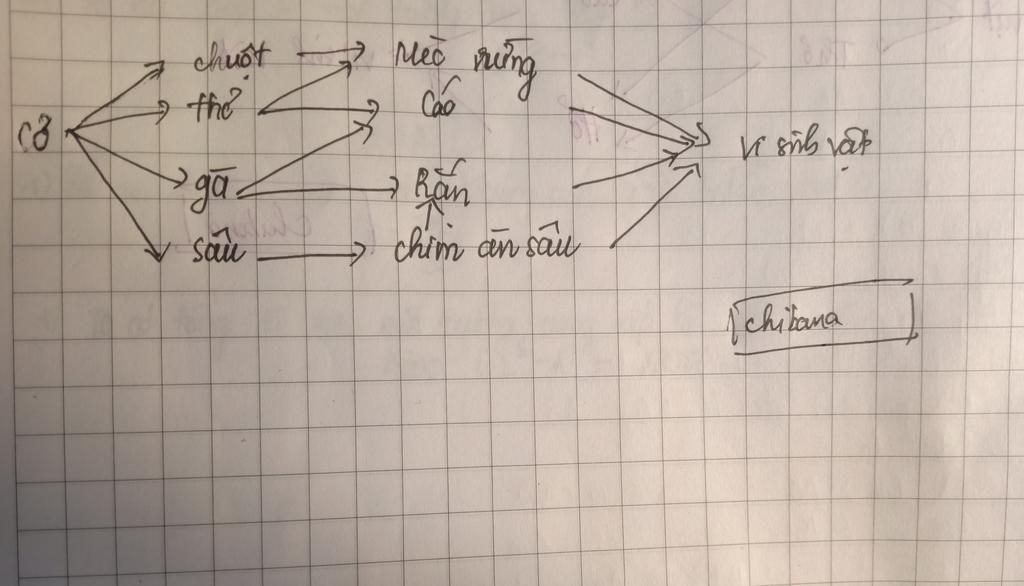 chuột → Mèo rừng
thỏ Cáo
cỏ vi sinh vật
gà → Rắn
sâu → chim ăn sâu
chibana